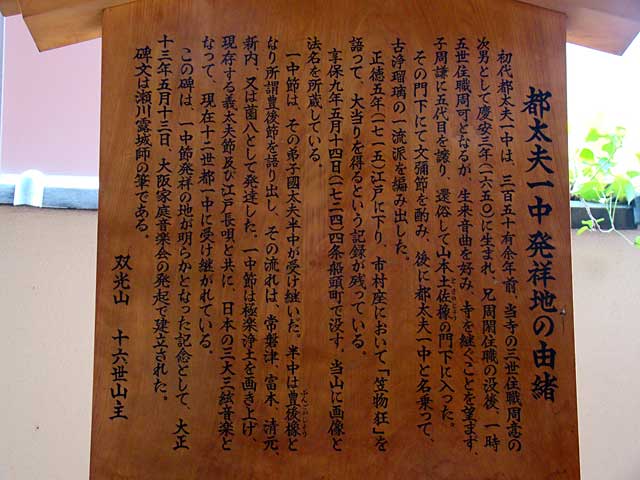 都太夫一中 発祥地の由緒
初代都太夫一中は、三百五十有余年前、当寺の三世住職周意の
次男として慶安三年(一六五〇)に生まれ、兄周閑住職の没後、一時
五世住職周可となるが、生来音曲を好み、寺を継ぐことを望まず、
子周謙に五代目を譲り、還俗して山本土佐掾の門下に入った。
その門下にて文彌節を酌み、後に都太夫一中と名乗って、
古浄瑠璃の一流派を編み出した。
正徳五年(一七一五)江戸に下り、市村座において「笠物狂」を
語って、大当りを得るという記録が残っている。
享保九年五月十四日(一七二四)四条船頭町で没す。当山に画像と
法名を所蔵している。
一中節は、その弟子國太夫半中が受け継いだ。半中は豊後掾と
なり所謂豊後節を語り出し、その流れは、常磐津、富本、清元、
新内、又は薗八として発達した。一中節は極楽浄土を画き上げ、
現存する義太夫節及び江戸長唄と共に、日本の三大三絃音楽と
なって、現在十二世都一中に受け継がれている。
この碑は、一中節発祥の地が明らかとなった記念として、大正
十三年五月十三日、大阪家庭音楽会の発起で建立された。
碑文は瀬川露城師の筆である。
双光山 十六世山主